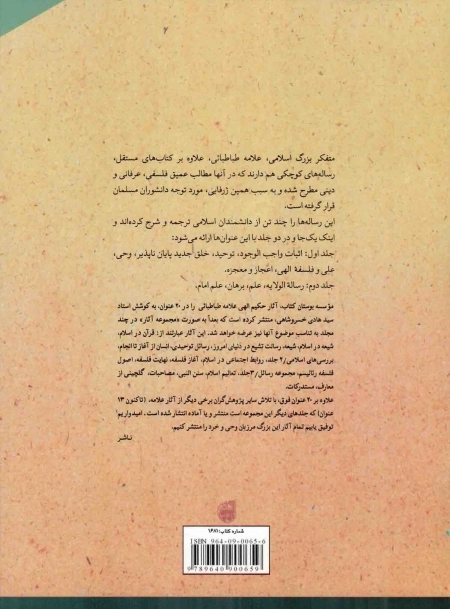 متفکر بزرگ اسلامی، علامه طباطبائی، علاوه بر کتاب‌های مستقل،
رساله‌های کوچکی هم دارند که در آنها مطالب عمیق فلسفی، عرفانی و
دینی مطرح شده و به سبب همین ژرفایی، مورد توجه دانشوران مسلمان
قرار گرفته است.
این رساله‌ها را چند تن از دانشمندان اسلامی ترجمه و شرح کرده‌اند و
اینک یک‌جا و در دو جلد با این عنوان‌ها ارائه می‌شود:
جلد اول: اثبات واجب الوجود، توحید، خلق جدید پایان ناپذیر، وحی،
علی و فلسفۀ الهی، اعجاز و معجزه.
جلد دوم: رسالة الولایه، علم، برهان، علم امام.
مؤسسه بوستان کتاب، آثار حکیم الهی علامه طباطبائی را در ۲۰ عنوان، به کوشش استاد
سید هادی خسروشاهی، منتشر کرده است که بعداً به صورت «مجموعه آثار» در چند
مجلد به تناسب موضوع آنها نیز عرضه خواهد شد. این آثار عبارتند از: قرآن در اسلام،
شیعه در اسلام، شیعه، رسالت تشیع در دنیای امروز، رسائل توحیدی، انسان از آغاز تا انجام،
بررسی‌های اسلامی/۲ جلد، روابط اجتماعی در اسلام، آغاز فلسفه، نهایت فلسفه، اصول
فلسفه رئالیسم، مجموعه رسائل/۳جلد، تعالیم اسلام، سنن النبی، مصاحبات، گلچینی از
معارف، مستدرکات.
علاوه بر ۲۰ عنوان فوق، با تلاش سایر پژوهش‌گران برخی دیگر از آثار علامه، (تاکنون ۱۳
عنوان) که جلدهای دیگر این مجموعه است منتشر و یا آماده انتشار شده است. امیدواریم
توفیق یابیم تمام آثار این بزرگ مرزبان وحی و خرد را منتشر کنیم.
ناشر
شماره کتاب: ۱۶۸۱
ISBN 964-09-0065-6
9789640900659